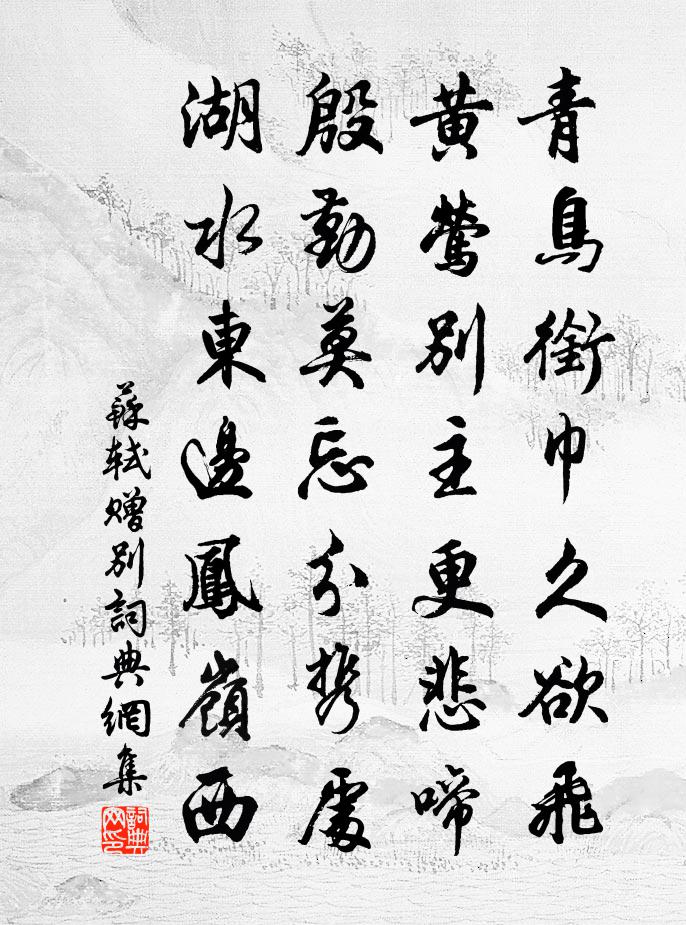 青鳥銜巾久欲飛
黃鶯別主更悲啼
殷勤莫忘分攜處
湖水東邊鳳嶺西
蘇軾贈別詞典網集
詞典網印